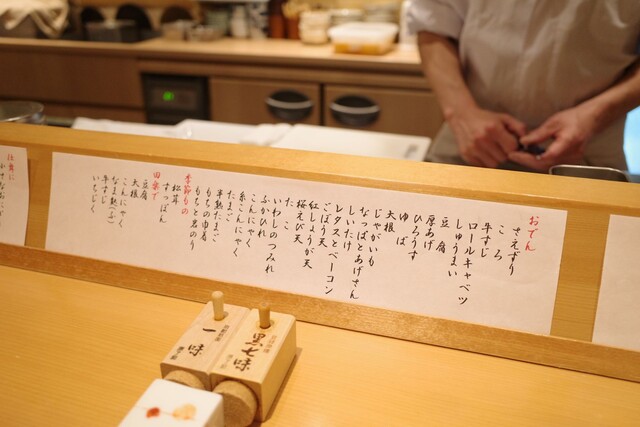 おでん
さえずり
ころ
牛すじ
ロールキャベツ
しゅうまい
豆腐
厚あげ
ひろうす
ゆば
大根
じゃがいも
なっぱとあげさん
しいたけ
レタスとベーコン
ごぼう天
紅しょうが天
桜えび天
たこ
いわしのつみれ
ふかひれ
こんにゃく
糸こんにゃく
たまご
半熟たまご
もちの巾着
もちと君のり
季節もの
松茸
すっぽん
田楽で
豆腐
大根
こんにゃく
なま麩
牛すじ
いちじく
一味
黒七味